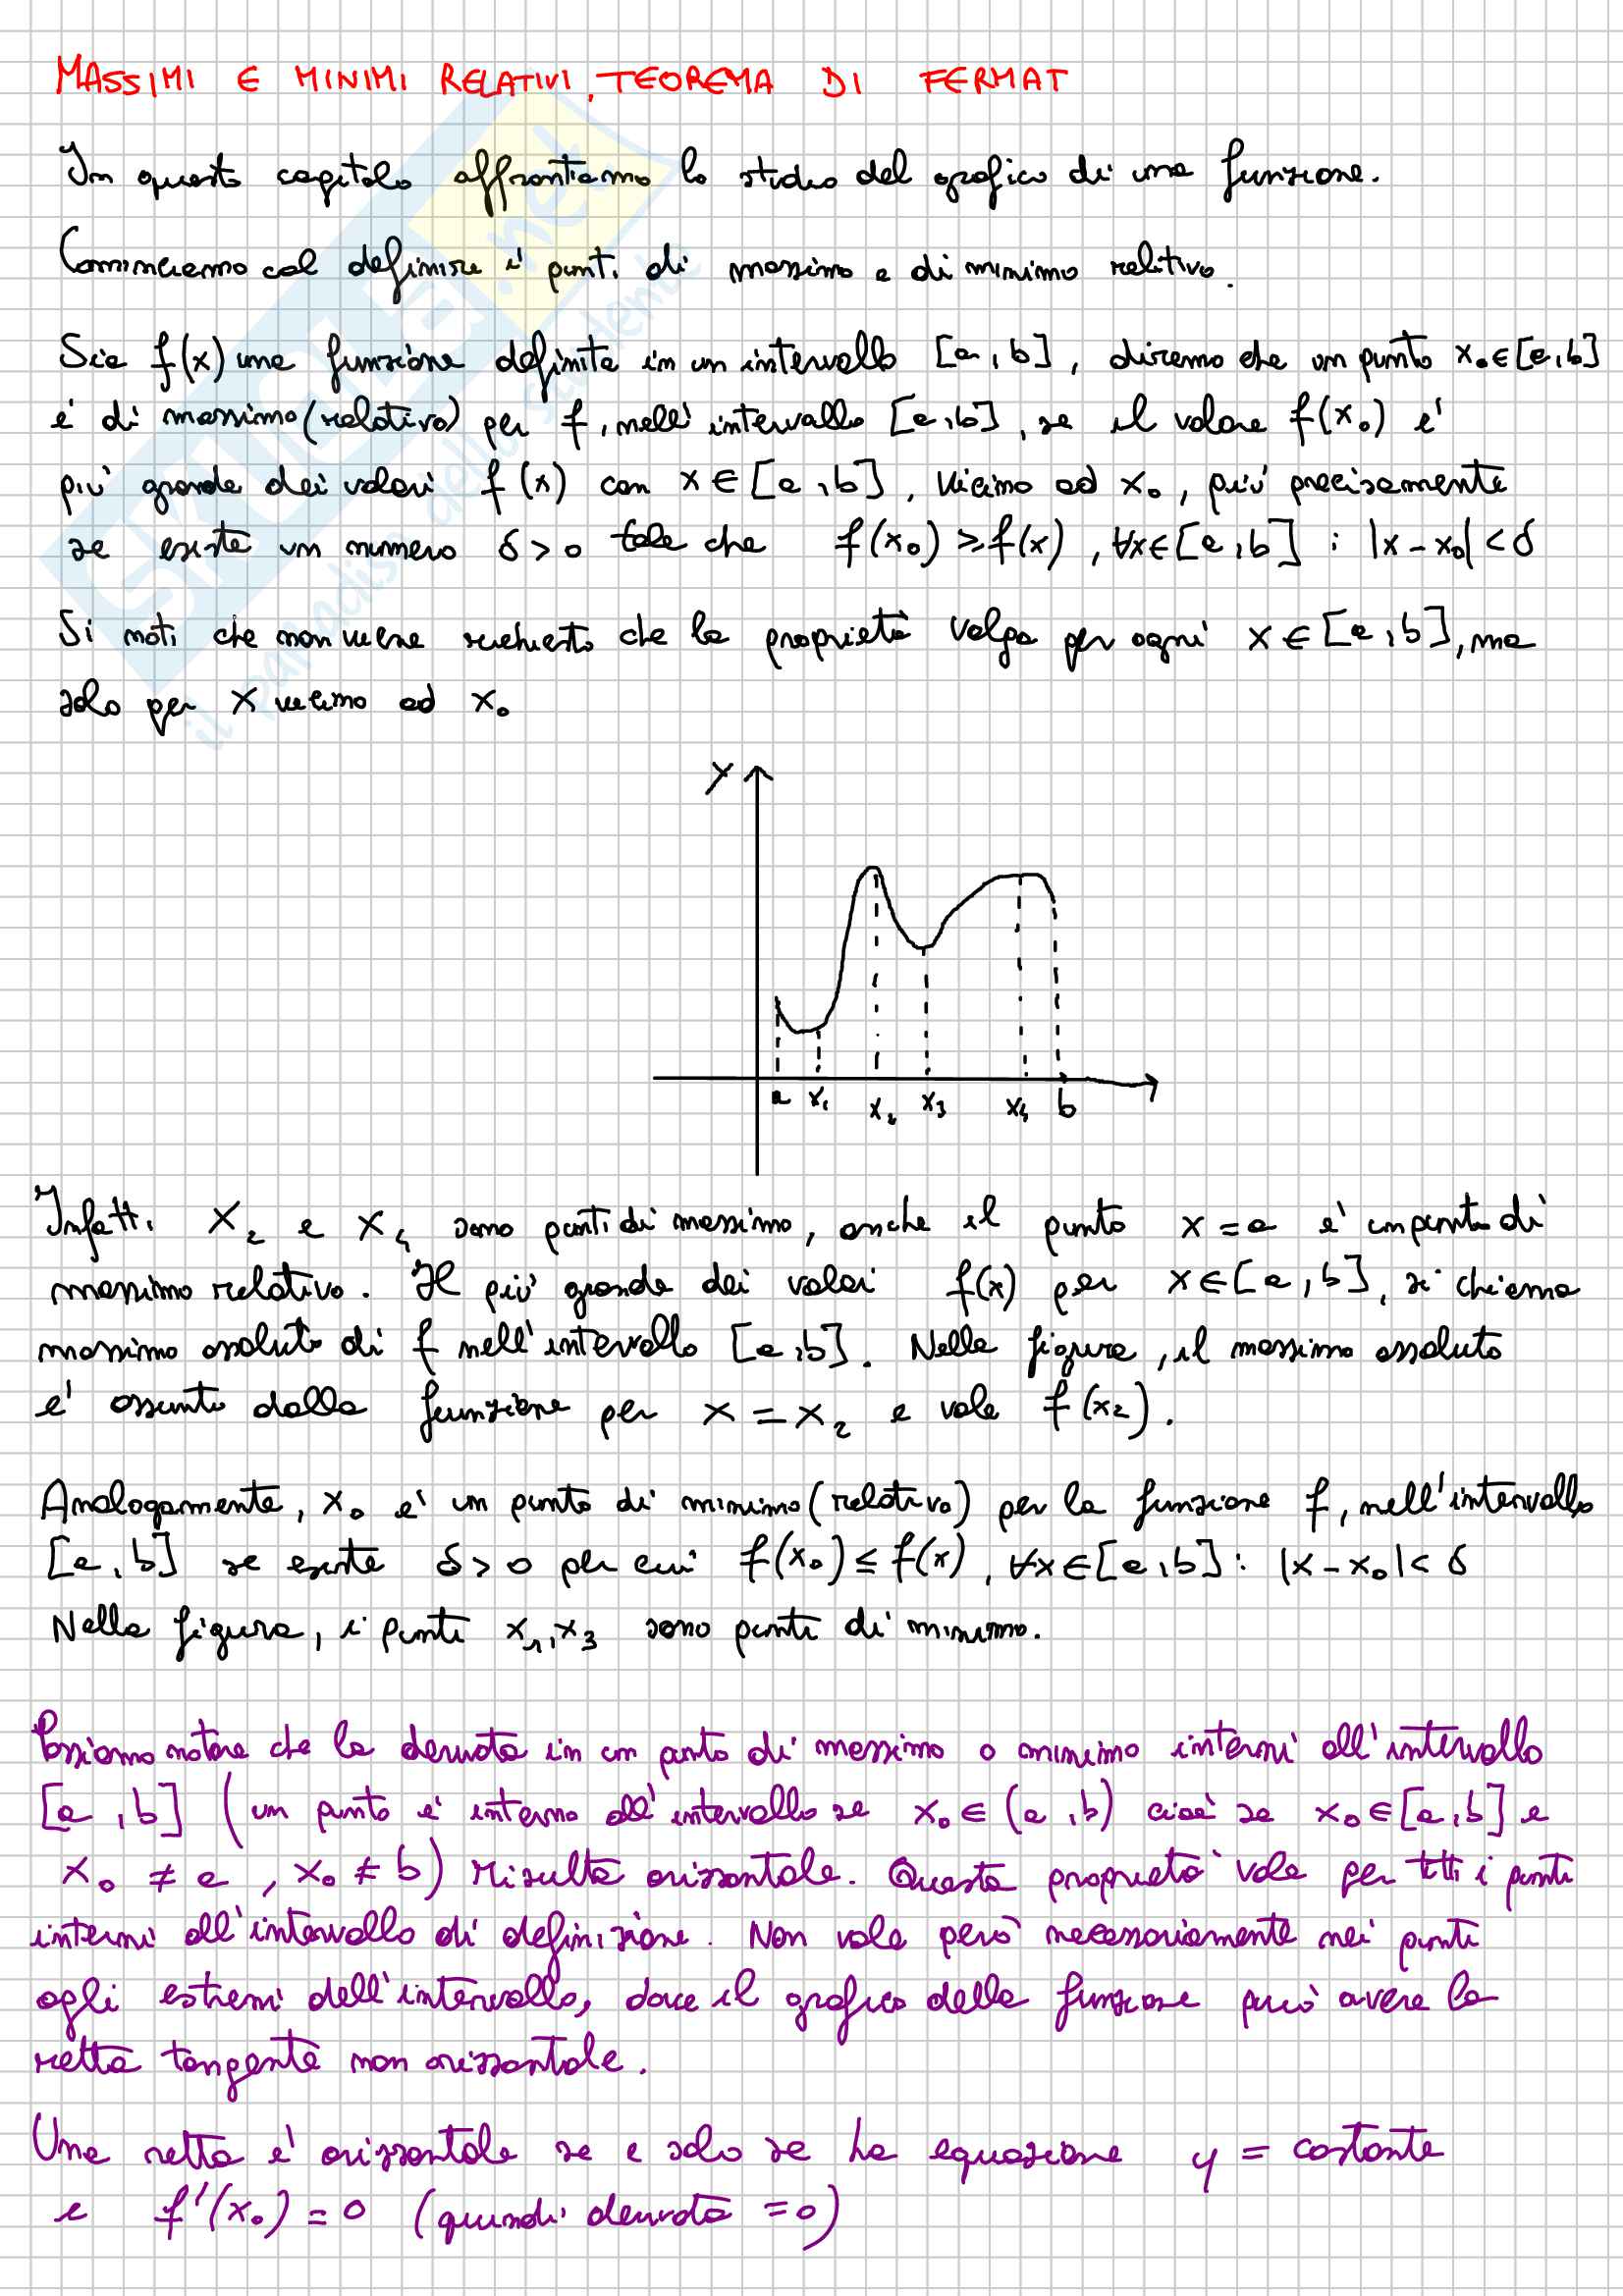 MASSIMI E MINIMI RELATIVI, TEOREMA DI FERMAT
In questo capitolo affrontiamo lo studio del grafico di una funzione.
Cominciamo col definire i punti di massimo e di minimo relativo.
Sia f(x) una funzione definita in un intervallo [a,b], diremo che un punto x₀∈[a,b]
e' di massimo (relativo) per f, nell'intervallo [a,b], se il valore f(x₀) e'
piu' grande dei valori f(x) con x∈[a,b], vicino ad x₀, piu' precisamente
se esiste un numero δ>0 tale che f(x₀)≥f(x), ∀x∈[a,b] : |x-x₀|<δ
Si noti che non viene richiesto che la proprietà valga per ogni x∈[a,b], ma
solo per x vicino ad x₀
y
a x₁ x₂ x₃ x₄ b
Infatti x₂ e x₄ sono punti di massimo, anche il punto x=a e' un punto di
massimo relativo. Il piu' grande dei valori f(x) per x∈[a,b], si chiama
massimo assoluto di f nell'intervallo [a,b]. Nella figura, il massimo assoluto
e' assunto dalla funzione per x=x₂ e vale f(x₂).
Analogamente, x₀ e' un punto di minimo (relativo) per la funzione f, nell'intervallo
[a,b] se esiste δ>0 per cui f(x₀)≤f(x), ∀x∈[a,b] : |x-x₀|<δ
Nella figura, i punti x₁,x₃ sono punti di minimo.
Possiamo notare che la derivata in un punto di massimo o minimo interni all'intervallo
[a,b] (un punto e' interno all'intervallo se x₀∈(a,b) cioè se x₀∈[a,b] e
x₀≠a, x₀≠b) risulta orizzontale. Questa proprieta' vale per tutti i punti
interni all'intervallo di definizione. Non vale pero' necessariamente nei punti
agli estremi dell'intervallo, dove il grafico della funzione puo' avere la
retta tangente non orizzontale.
Una retta e' orizzontale se e solo se ha equazione y = costante
e f'(x₀)=0 (quindi derivata =0)
SKUOLA.net
il paradiso dello studente